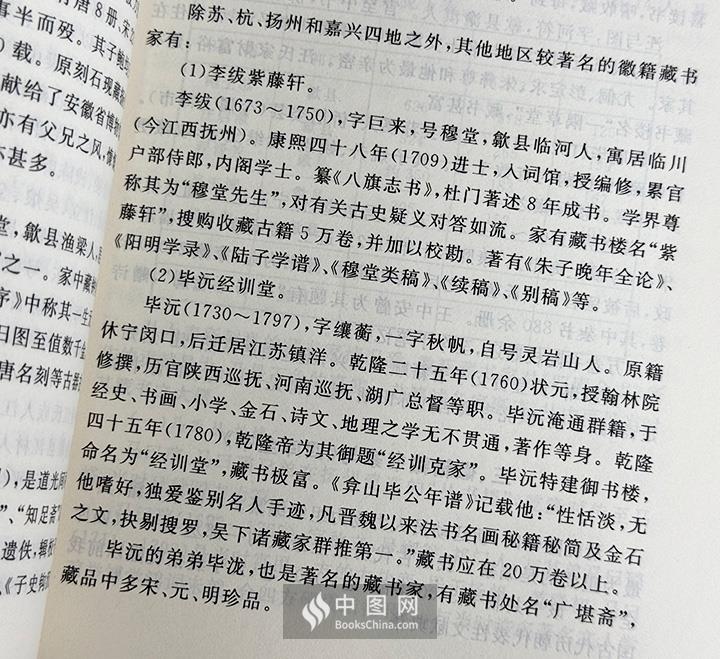 除苏、杭、扬州和嘉兴四地之外,其他地区较著名的徽籍藏书
家有:
(1)李绂紫藤轩。
李绂(1673～1750),字巨来,号穆堂,歙县临河人,寓居临川
(今江西抚州)。康熙四十八年(1709)进士,入词馆,授编修,累官
户部侍郎,内阁学士。纂《八旗志书》,杜门著述8年成书。学界尊
称其为“穆堂先生”,对有关古史疑义对答如流。家有藏书楼名“紫
藤轩”,搜购收藏古籍5万卷,并加以校勘。著有《朱子晚年全论》、
《阳明学录》、《陆子学谱》、《穆堂类稿》、《续稿》、《别稿》等。
(2)毕沅经训堂。
毕沅(1730～1797),字纕蘅,一字秋帆,自号灵岩山人。原籍
休宁闵口,后迁居江苏镇洋。乾隆二十五年(1760)状元,授翰林院
修撰,历官陕西巡抚、河南巡抚、湖广总督等职。毕沅淹通群籍,于
经史、书画、小学、金石、诗文、地理之学无不贯通,著作等身。乾隆
四十五年(1780),乾隆帝为其御题“经训克家”。毕沅特建御书楼,
命名为“经训堂”,藏书极富。《弇山毕公年谱》记载他:“性恬淡,无
他嗜好,独爱鉴别名人手迹,凡晋魏以来法书名画秘籍秘简及金石
之文,抉剔搜罗,吴下诸藏家群推第一。”藏书应在20万卷以上。
毕沅的弟弟毕泷,也是著名的藏书家,有藏书处名“广堪斋”,
藏品中多宋、元、明珍品。
唐8册,宋2
事半而殁。其子鲍
)载。原刻石现藏
献给了安徽省博物
亦有父兄之风,惟
甚多。
堂,歙县渔梁人,
之一。家中藏
序》中称其一生
日图至值数千
唐名刻等古器
),是道光间
”、“知足斋”
遗佚,辑
《子史
中图网
BooksChina.com